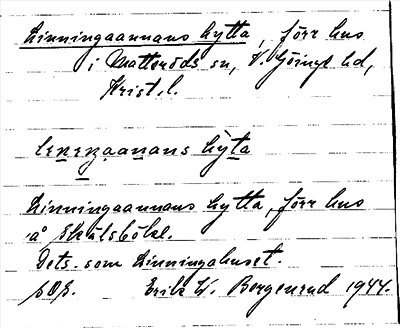 Linningaannans hytta, förr hus
i Matteröds sn, V. Göinge hd,
Krist. l.
lenenaanans hyta
Linningaannans hytta, förr hus
å Ekalsböke.
Dets. som Linningahuset.
Erik W. Bergenrud 1944.